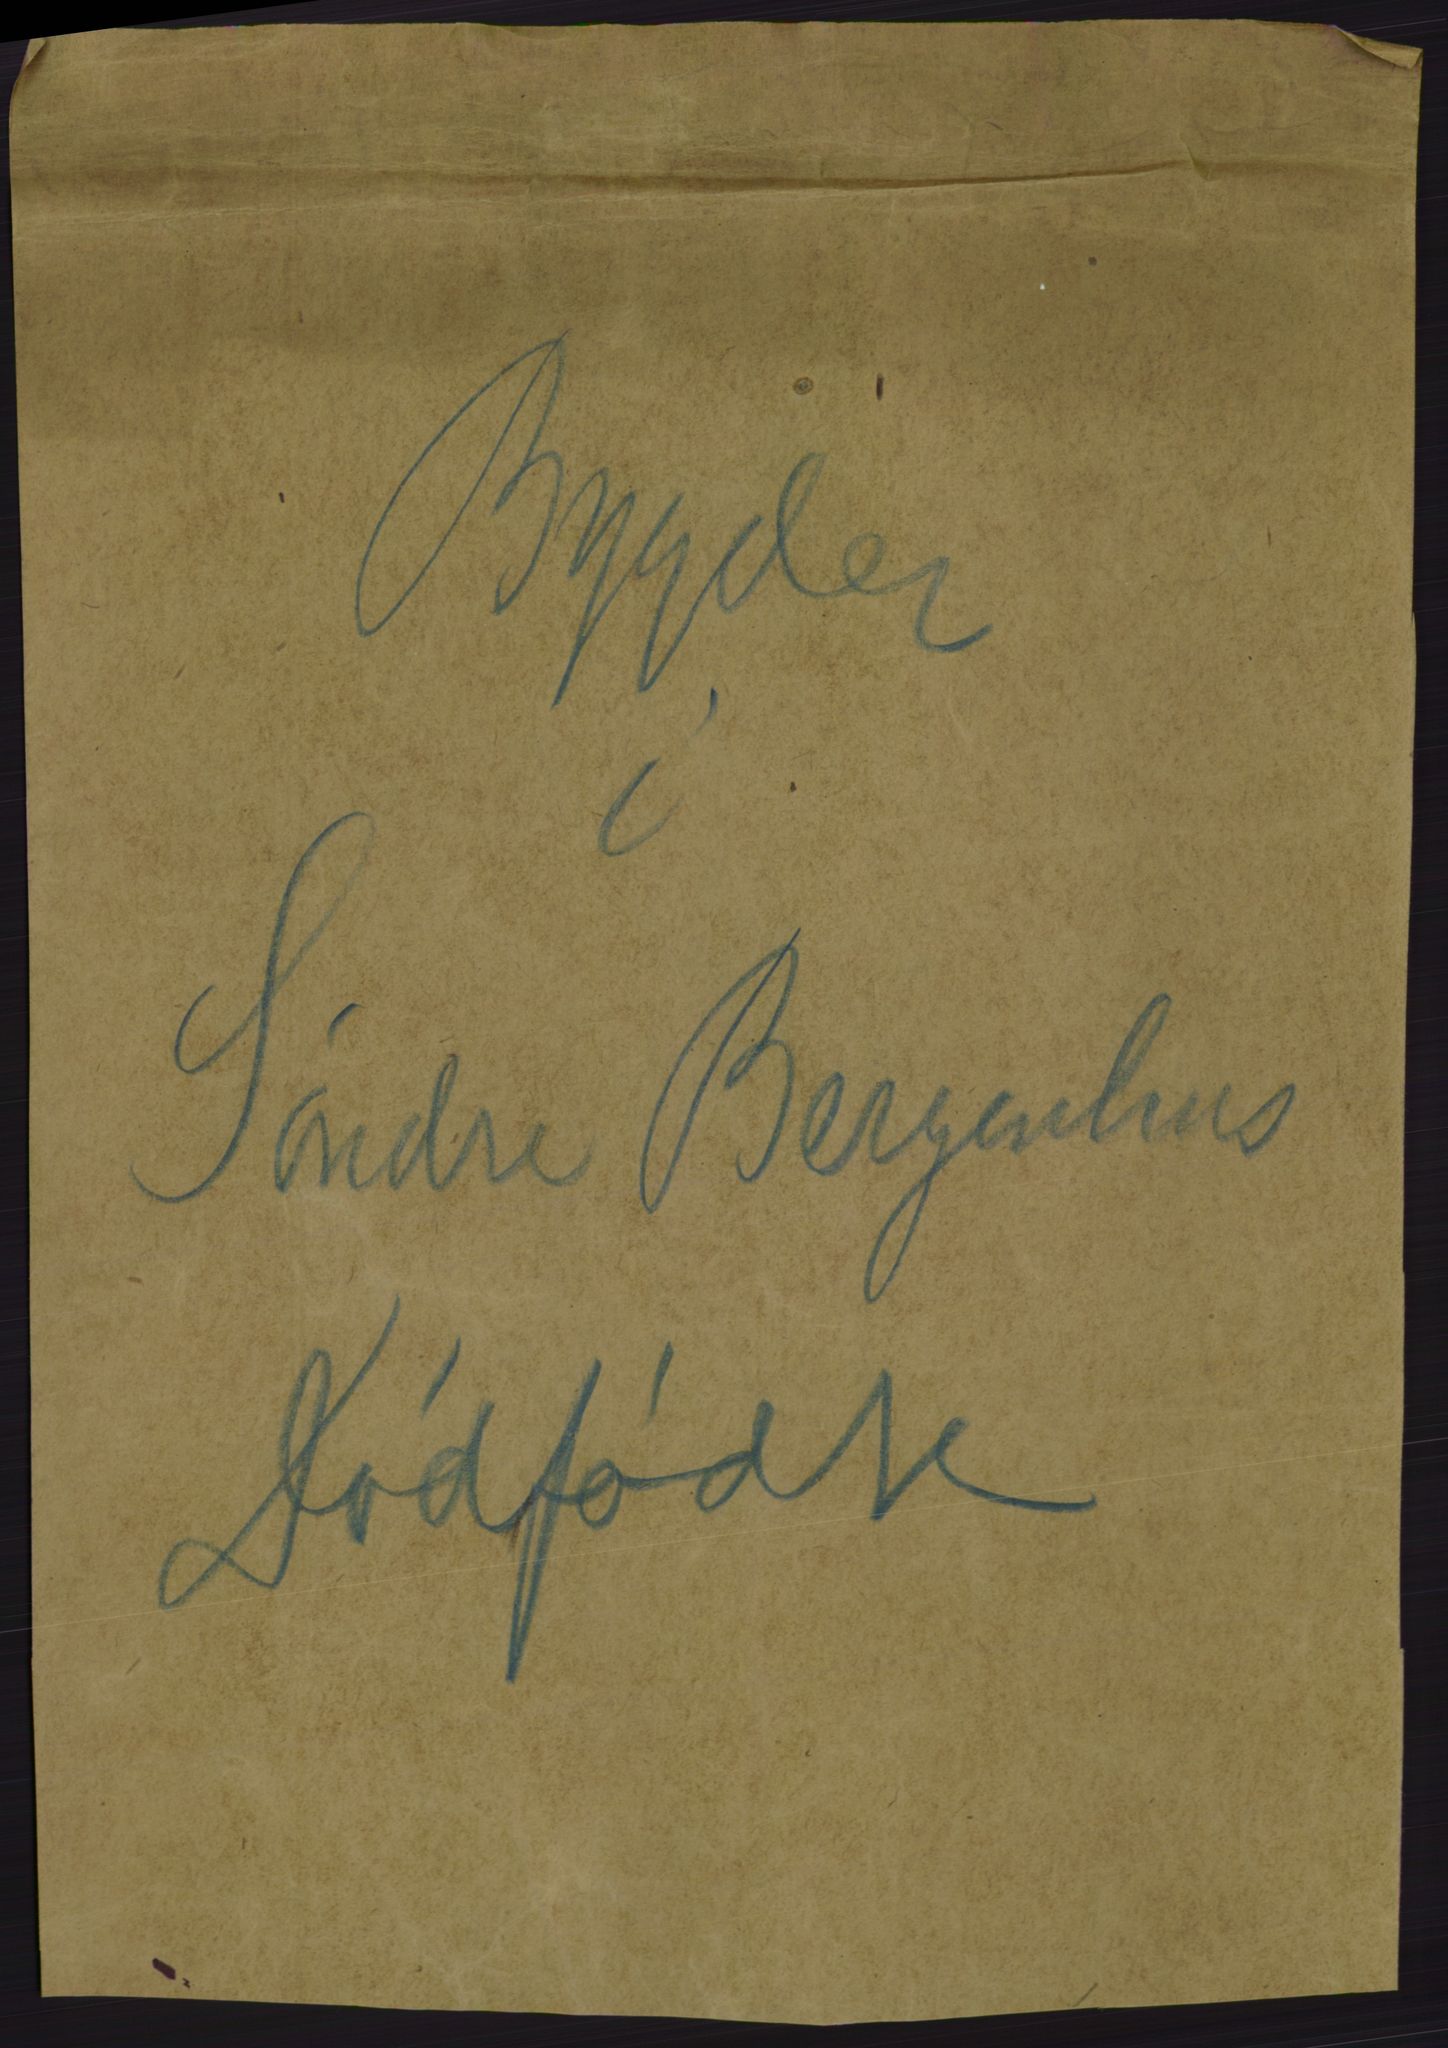 Bygder
i
Söndre Bergenhus
Dódfódte